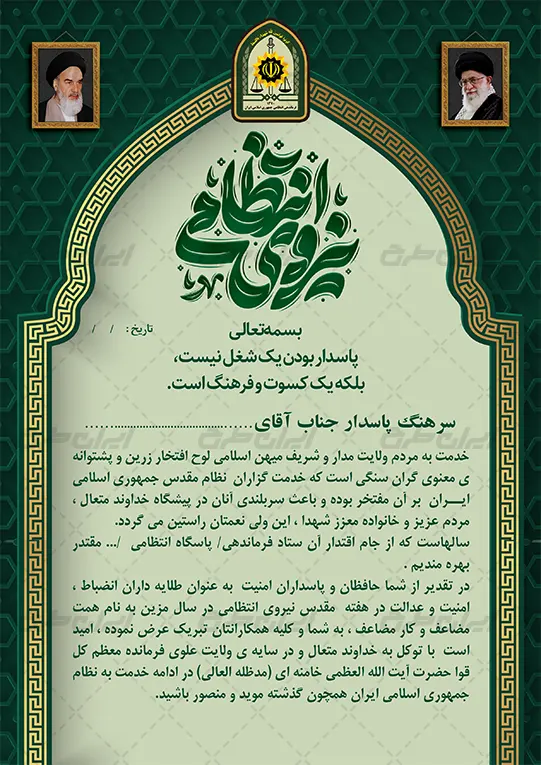 نیروی انتظامی
بسمه‌تعالی
تاریخ : / /
پاسدار بودن یک شغل نیست،
بلکه یک کسوت و فرهنگ است.
سرهنگ پاسدار جناب آقای................................................
خدمت به مردم ولایت مدار و شریف میهن اسلامی لوح افتخار زرین و پشتوانه
ی معنوی گران سنگی است که خدمت گزاران نظام مقدس جمهوری اسلامی
ایـــران بر آن مفتخر بوده و باعث سربلندی آنان در پیشگاه خداوند متعال ،
مردم عزیز و خانواده معزز شهدا ، این ولی نعمتان راستین می گردد.
سالهاست که از جام اقتدار آن ستاد فرماندهی/ پاسگاه انتظامی /... مقتدر
بهره مندیم .
در تقدیر از شما حافظان و پاسداران امنیت به عنوان طلایه داران انضباط ،
امنیت و عدالت در هفته مقدس نیروی انتظامی در سال مزین به نام همت
مضاعف و کار مضاعف ، به شما و کلیه همکارانتان تبریک عرض نموده ، امید
است با توکل به خداوند متعال و در سایه ی ولایت علوی فرمانده معظم کل
قوا حضرت آیت الله العظمی خامنه ای (مدظله العالی) در ادامه خدمت به نظام
جمهوری اسلامی ایران همچون گذشته موید و منصور باشید.
ایران طرح